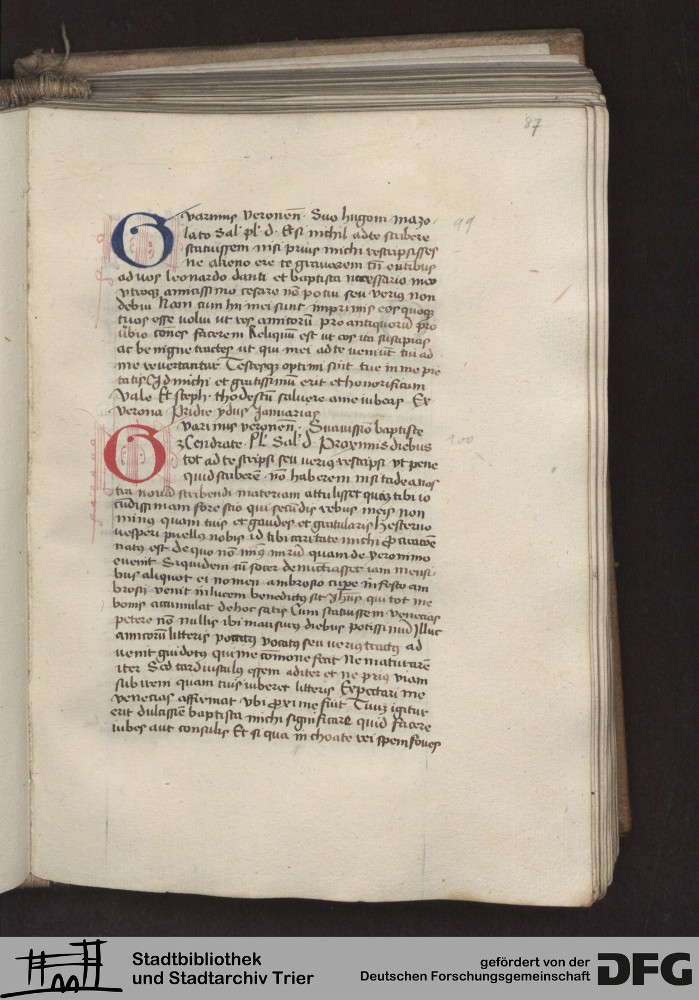 87
Gvarinus veronen̄. Suo hugoni mazo-
lato Sal. pl. d. Etsi nichil ad te scribere
99
statuissem nisi prius michi rescripsisses
ne alieno ere te gravarem tn̄ euntibus
ad vos leonardo danti et baptista necessario meo
vtroqȝ amicissimo cesare nō potui seu verius non
debui Nam cum hii mei sunt inprimis eos quoqȝ
tuos esse volui ut vos amicorū pro antiquorū pro
facerem Reliquum est ut eos ita suscipias
ac benigne tractes ut qui mei ad te veniūt tui ad
me revertantur Testesqȝ optimi sint tue in me pie
tatis Id michi et gratissimū erit et honorificum
Vale Et steph. thodestū salvere a me iubeas Ex
verona Pridie ydus Ianuarias
Gvarinus veronen̄. Suavissīo baptiste
zCendrate. pl. Sal. d. Proximis diebus
100
tot ad te scripsi seu verius rescripsi vt pene
quid scriberē nō haberem nisi tade a nos
tra novā scribendi materiam attulisset quā tibi io
cūdissimam fore scio qui secūdis rebus meis non
minus quam tuis et gaudes et gratularis Hesterno
vesperi puellus nobis id tibi caritate michi
natus est de quo nō min⁹ mirū quam de veronimo
evenit Siquidem cū socer denūctiasset iam mensi-
bus aliquot ei nomen ambrosio in festo am
brosii venit in lucem benedictus sit yhūs qui tot me
bonis accumulat de hoc satis Cum statuissem venecias
petere nō nullis ibi mansurus diebus potissimū Illuc
amicorū litteris vocatus seu verius tractus ad
venit guidotus qui me cōmonefecit Ne maturarē
iter Sed tardiusculus essem ad iter et ne prius viam
subirem quam tuis iuberer litteris Expectari me
venecias affirmat vbi proxime fuit Tuum igitur
erit dulcissīe baptista michi significare quid facere
iubes aut consulis Et si qua inchoate rei spem foves
Stadtbibliothek
und Stadtarchiv Trier
gefördert von der
Deutschen Forschungsgemeinschaft
DFG